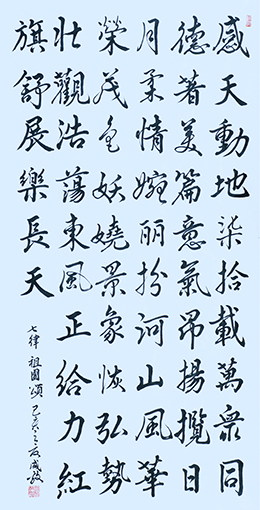 感天動地柒拾載萬衆同
德著美篇意氣昂揚攬日
月柔情婉丽扮河山風華
榮茂色妖嬈景象恢弘勢
壯觀浩蕩東風正給力紅
旗舒展樂長天
七律 祖國頌 己亥之